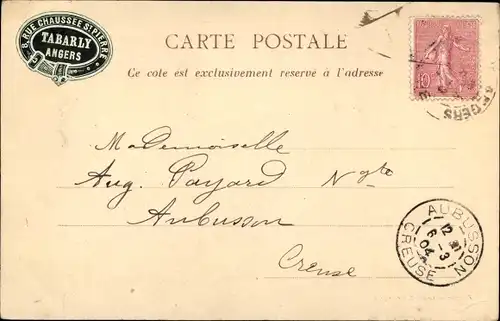 8, RUE CHAUSSÉE ST PIERRE
TABARLY
ANGERS
CARTE POSTALE
Ce côté est exclusivement reservé à l'adresse
10
ANGERS
Mademoiselle
Aug. Payard Ngte
Aubusson
Creuse
AUBUSSON
12
6 - 3
04
CREUSE